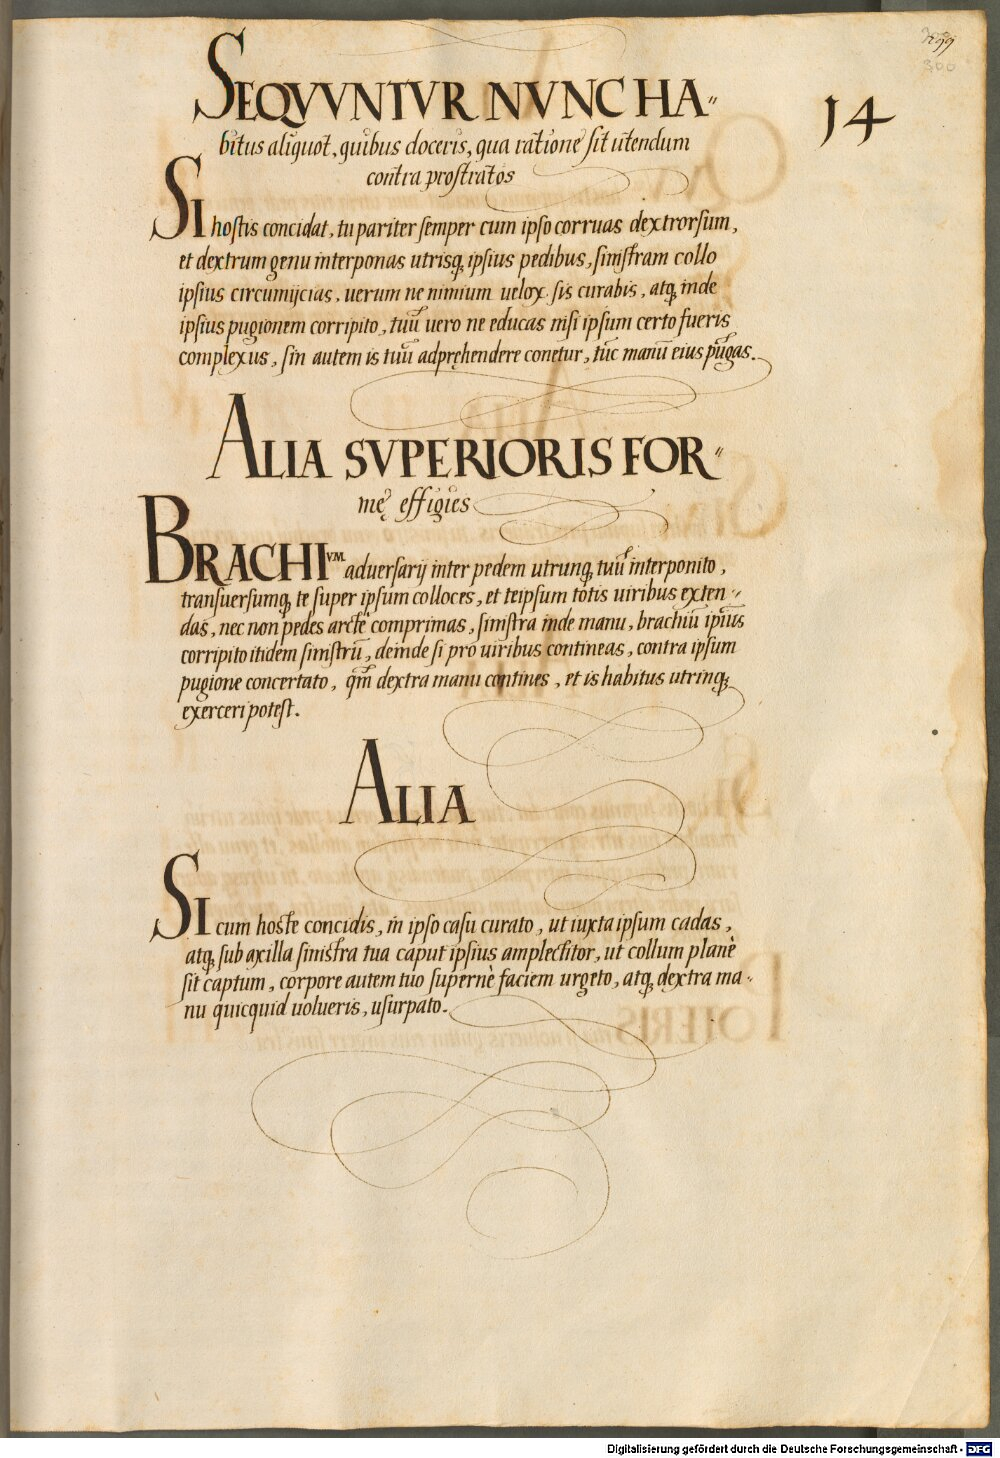 299
300
14
SEQVVNTVR NVNC HA〃
bitus aliquot, quibus doceris, qua ratione sit utendum
contra prostratos
SI hostis concidat, tu pariter semper cum ipso corruas dextrorsum,
et dextrum genu interponas utrisq, ipsius pedibus, sinistram collo
ipsius circumijcias, uerum ne nimium uelox sis curabis, atq, inde
ipsius pugionem corripito, tuũ uero ne educas nisi ipsum certo fueris
complexus, sin autem is tuũ adpręhendere conetur, tũc manũ eius pũgas.
ALIA SVPERIORIS FOR〃
mę effigies
BRACHIVM aduersarij inter pedem utrunq, tuũ interponito,
transuersumq, te super ipsum colloces, et teipsum totis uiribus exten〃
das, nec non pedes arctè comprimas, sinistra inde manu, brachiũ ipsius
corripito itidem sinistrũ, deinde si pro uiribus contineas, contra ipsum
pugione concertato, qm̃ dextra manu contines, et is habitus utrinq,
exerceri potest.
ALIA
SI cum hoste concidis, in ipso casu curato, ut iuxta ipsum cadas,
atq, sub axilla sinistra tua caput ipsius amplectitor, ut collum planè
sit captum, corpore autem tuo supernè faciem urgeto, atq, dextra ma〃
nu quicquid uolueris, usurpato.
Digitalisierung gefördert durch die Deutsche Forschungsgemeinschaft - DFG